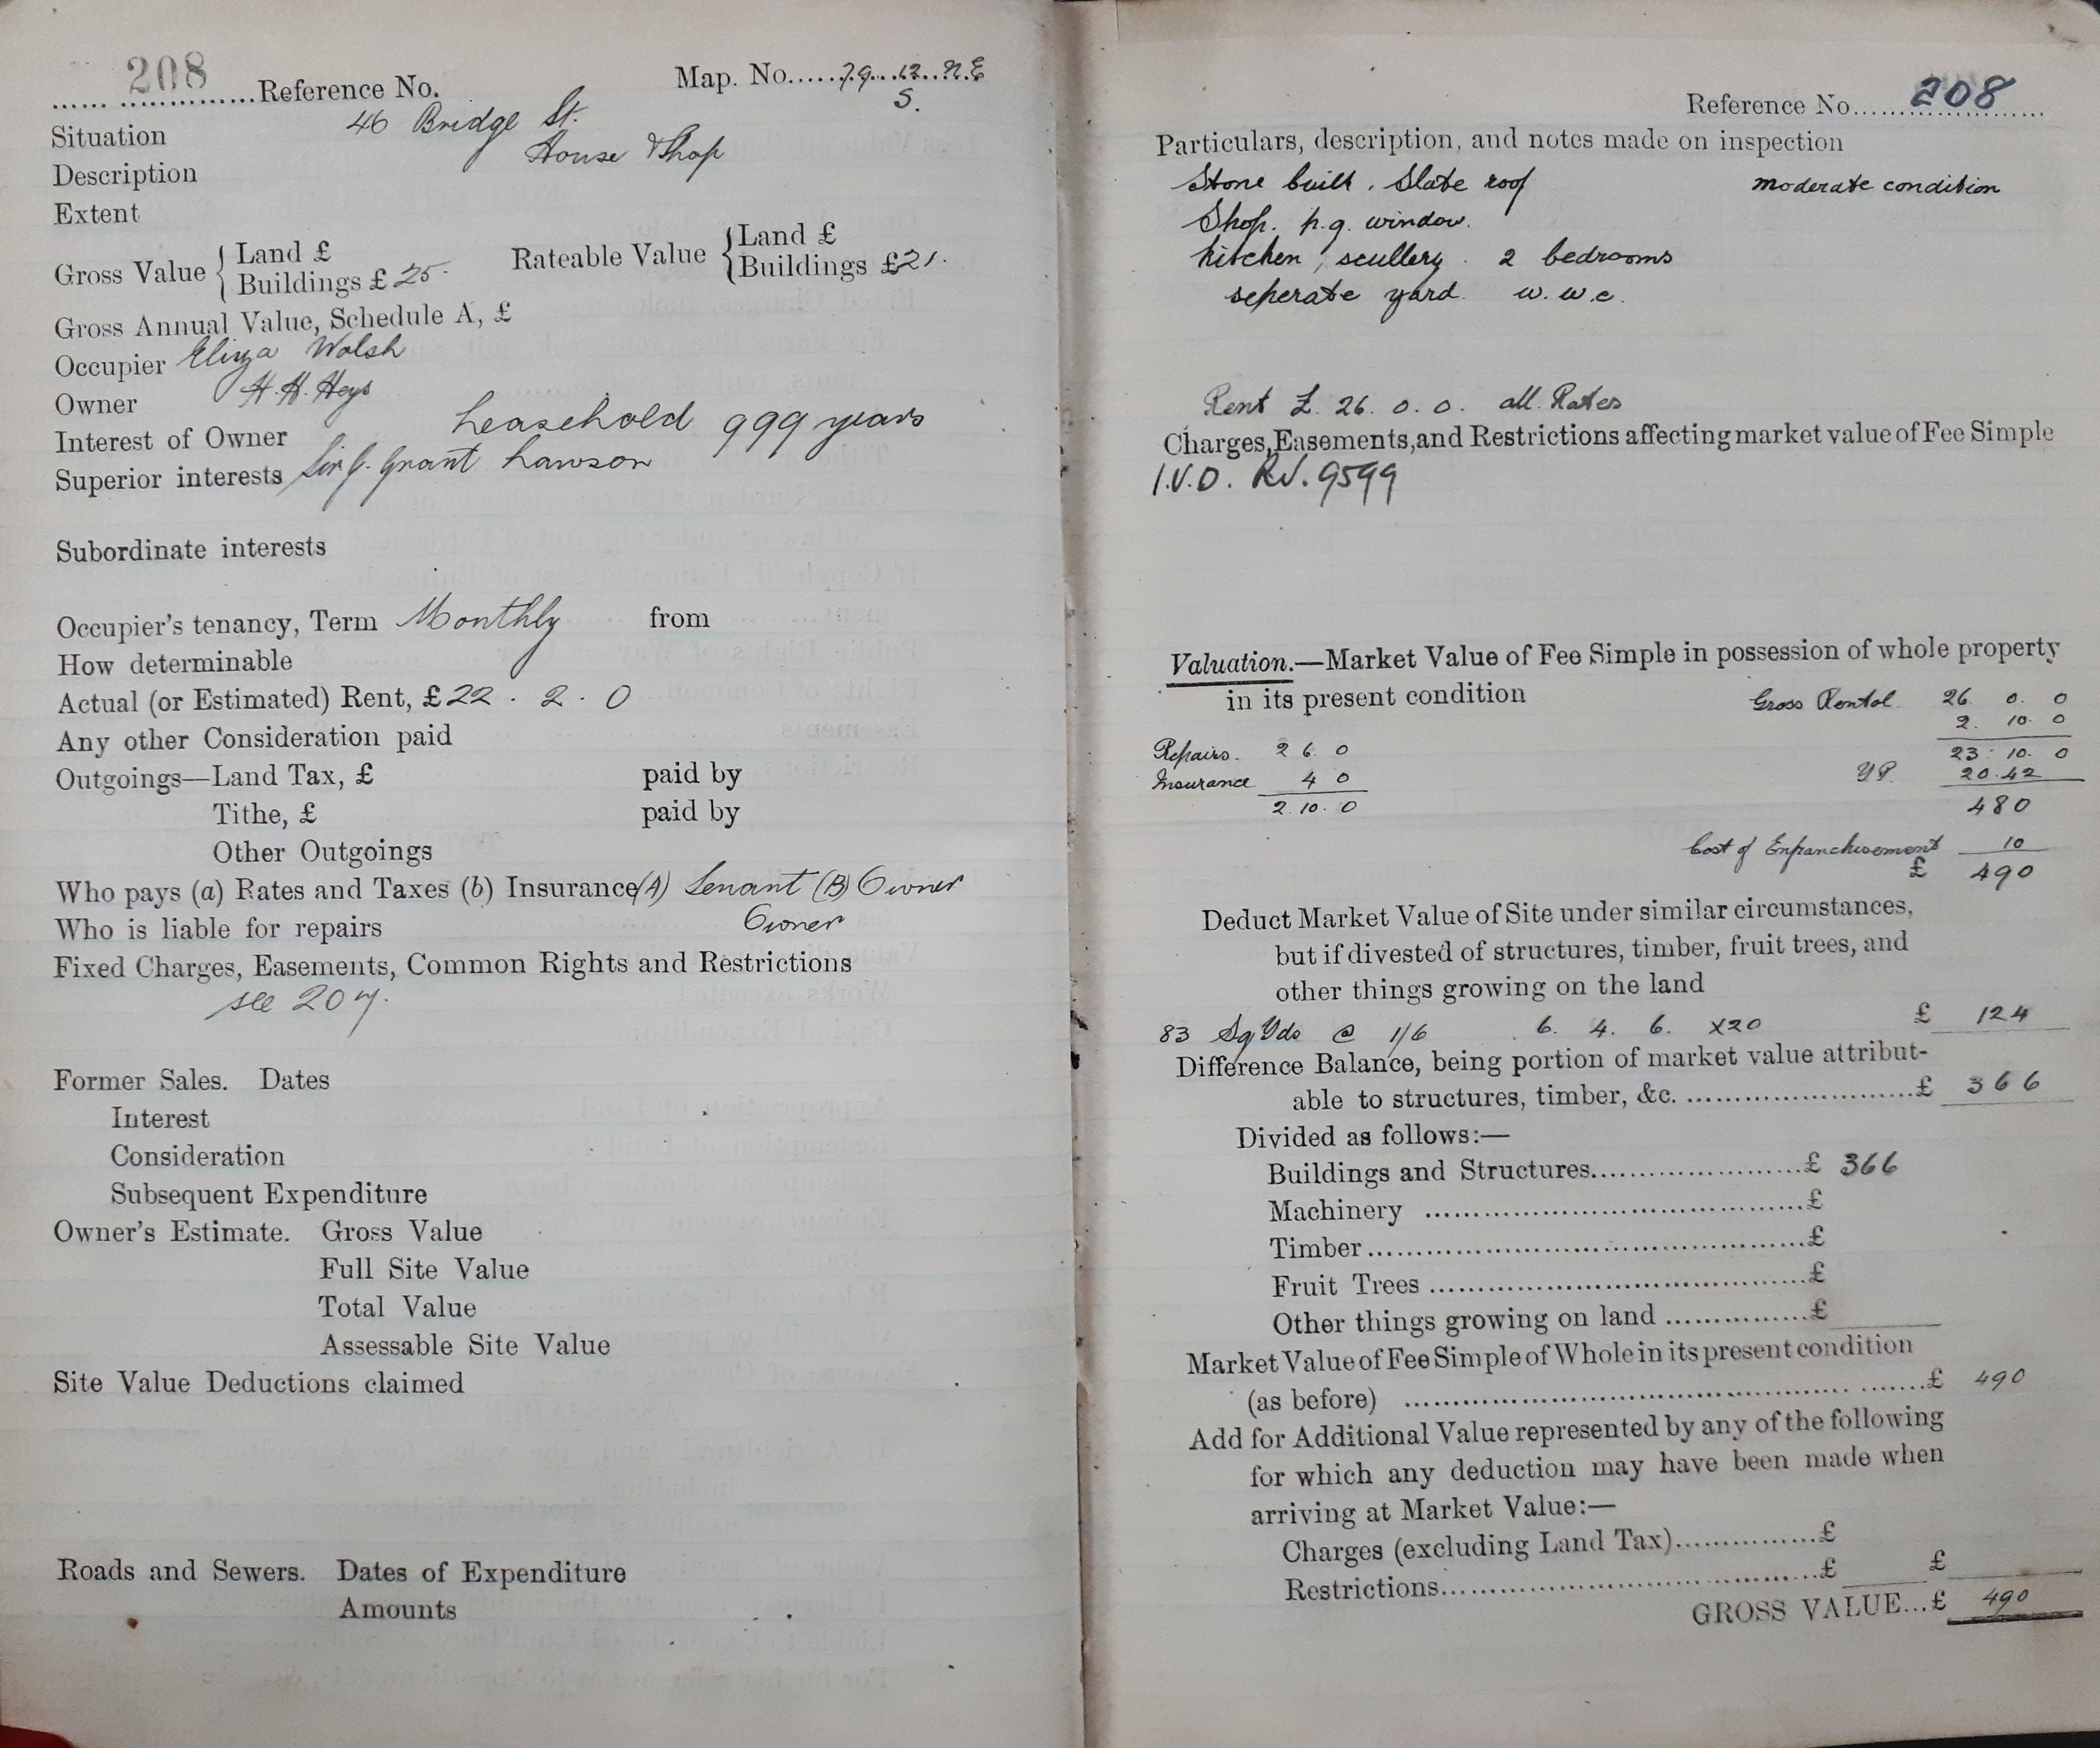 208 Reference No. Map. No. 79. 12. N.E
S.
Situation 46 Bridge St.
Description House & Shop
Extent
Gross Value { Land £
Buildings £ 25.
Rateable Value { Land £
Buildings £21.
Gross Annual Value, Schedule A, £
Occupier Eliza Walsh
Owner H. H. Heys
Interest of Owner Leasehold 999 years
Superior interests Sir J. Grant Lawson
Subordinate interests
Occupier's tenancy, Term Monthly from
How determinable
Actual (or Estimated) Rent, £22 . 2 . 0
Any other Consideration paid
Outgoings—Land Tax, £ paid by
Tithe, £ paid by
Other Outgoings
Who pays (a) Rates and Taxes (b) Insurance (A) Tenant (B) Owner
Who is liable for repairs Owner
Fixed Charges, Easements, Common Rights and Restrictions
see 207.
Former Sales. Dates
Interest
Consideration
Subsequent Expenditure
Owner's Estimate. Gross Value
Full Site Value
Total Value
Assessable Site Value
Site Value Deductions claimed
Roads and Sewers. Dates of Expenditure
Amounts
Reference No. 208
Particulars, description, and notes made on inspection
Stone built. Slate roof moderate condition
Shop. p.g. window.
Kitchen, scullery. 2 bedrooms
seperate yard. w.w.c.
Rent £. 26. 0. 0. all. Rates
Charges, Easements, and Restrictions affecting market value of Fee Simple
I.V.D. RV. 9599
Valuation.—Market Value of Fee Simple in possession of whole property
in its present condition Gross Rental. 26. 0. 0
2. 10. 0
Repairs. 2 6. 0 23. 10. 0
Insurance 4 0 YP. 20.42
2. 10. 0 480
Cost of Enfranchisement 10
£ 490
Deduct Market Value of Site under similar circumstances,
but if divested of structures, timber, fruit trees, and
other things growing on the land
83 Sq Yds @ 1/6 6. 4. 6. x20 £ 124
Difference Balance, being portion of market value attribut-
able to structures, timber, &c. £ 366
Divided as follows:—
Buildings and Structures £ 366
Machinery £
Timber £
Fruit Trees £
Other things growing on land £
Market Value of Fee Simple of Whole in its present condition
(as before) £ 490
Add for Additional Value represented by any of the following
for which any deduction may have been made when
arriving at Market Value:—
Charges (excluding Land Tax) £
Restrictions £ £
GROSS VALUE...£ 490